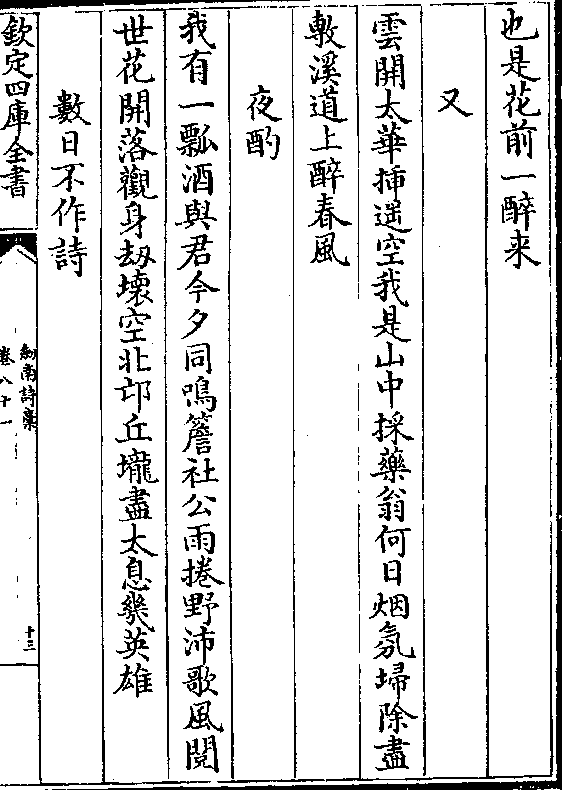 也是花前一醉来
又
雲開太華揷遥空我是山中採藥翁何日烟氛埽除盡
敷溪道上醉春風
夜酌
我有一瓢酒與君今夕同鳴簷社公雨捲野沛歌風閱
世花開落觀身劫壊空北邙丘壠盡太息幾英雄
數日不作詩
欽定四庫全書
劒南詩藁
卷八十一
十三